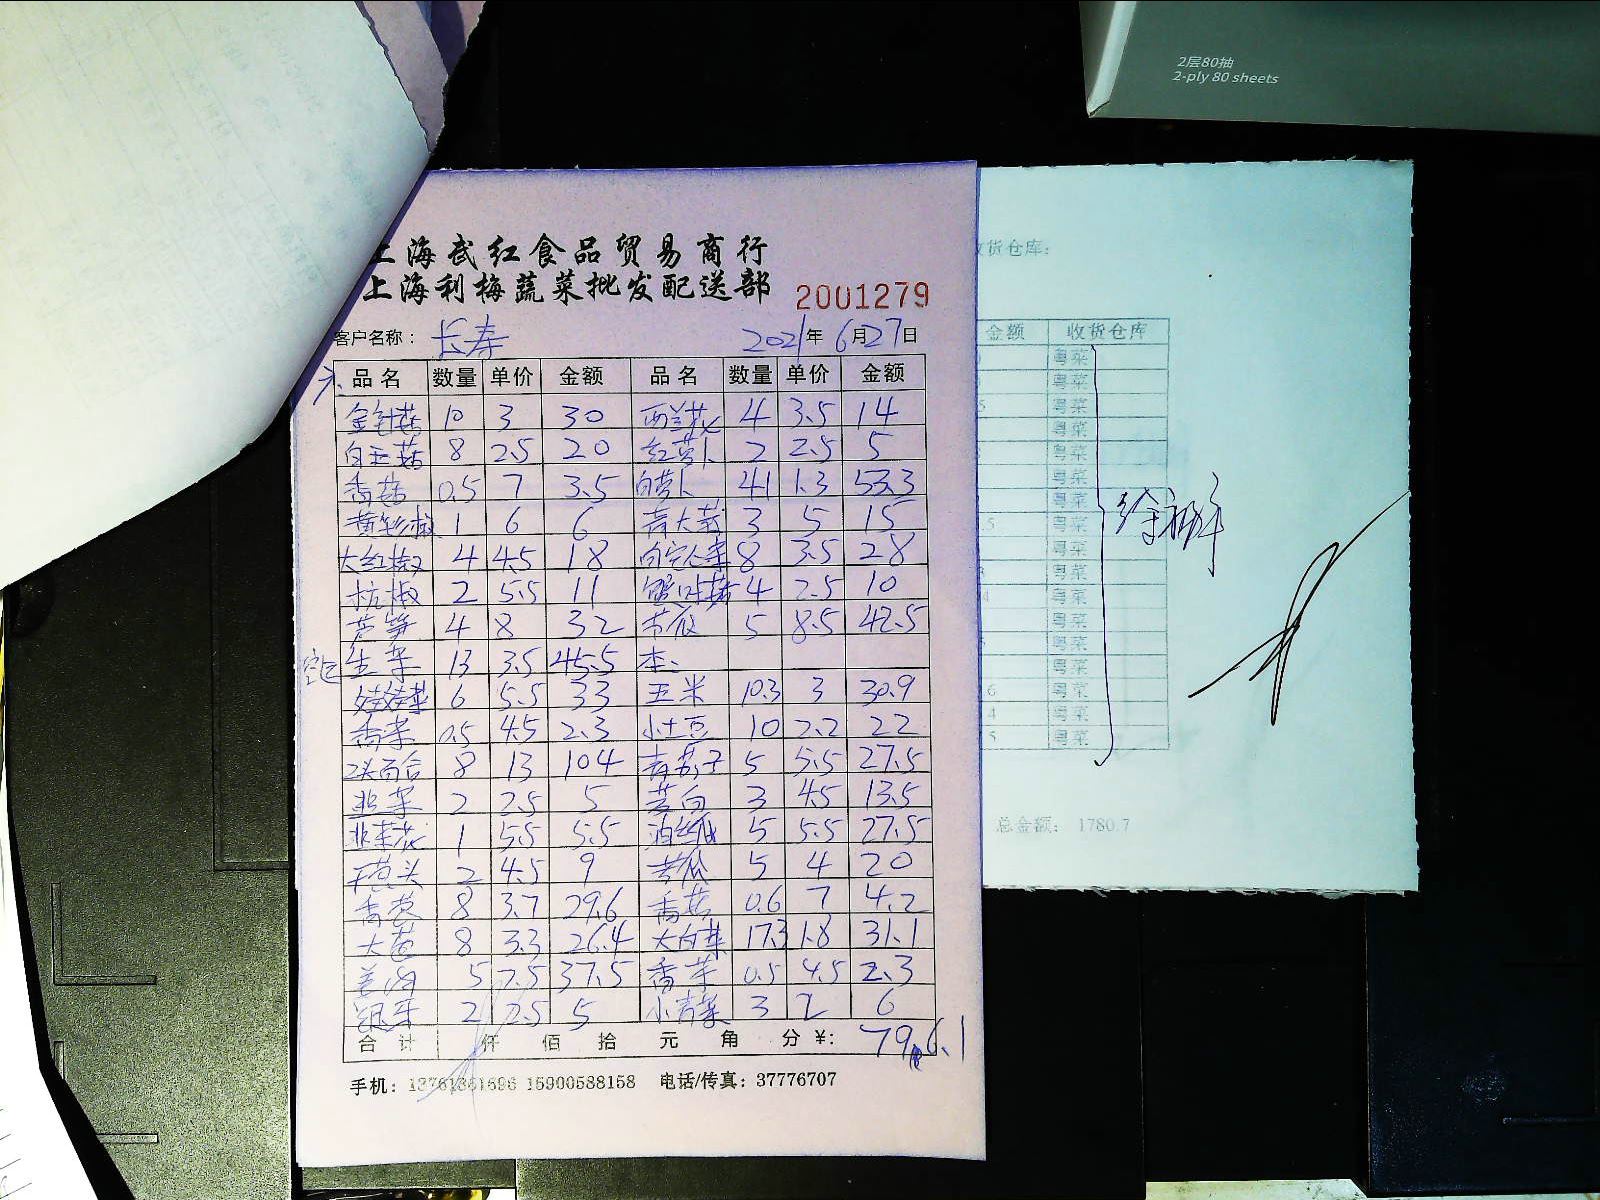 2层80抽
2-ply 80 sheets
上海武红食品贸易商行
上海利梅蔬菜批发配送部
2001279
客户名称： 长寿 2021年6月27日
品名 数量 单价 金额 品名 数量 单价 金额
金针菇 10 3 30 西兰花 4 3.5 14
白玉菇 8 2.5 20 红萝卜 2 2.5 5
香菇 0.5 7 3.5 白萝卜 41 1.3 53.3
黄彩椒 1 6 6 3 5 15
大红椒 4 4.5 18 8 3.5 28
杭椒 2 5.5 11 蟹味菇 4 2.5 10
芦笋 4 8 32 节瓜 5 8.5 42.5
生菜 13 3.5 45.5 本、
娃娃菜 6 5.5 33 玉米 10.3 3 30.9
香菜 0.5 4.5 2.3 小土豆 10 2.2 22
2头百合 8 13 104 青茄子 5 5.5 27.5
韭菜 2 2.5 5 茭白 3 4.5 13.5
韭菜花 1 5.5 5.5 5 5.5 27.5
干葱头 2 4.5 9 苦瓜 5 4 20
香葱 8 3.7 29.6 香菇 0.6 7 4.2
大葱 8 3.3 26.4 大白菜 17.3 1.8 31.1
姜肉 5 7.5 37.5 香菜 0.5 4.5 2.3
银牙 2 2.5 5 小青菜 3 2 6
合计 仟 佰 拾 元 角 分 ¥: 796.1
手机： 15900588158 电话/传真：37776707
收货仓库：
金额 收货仓库
粤菜
粤菜
5 粤菜
粤菜
粤菜
粤菜
粤菜
5 粤菜
粤菜
粤菜
4 粤菜
粤菜
粤菜
粤菜
6 粤菜
4 粤菜
5 粤菜
总金额： 1780.7